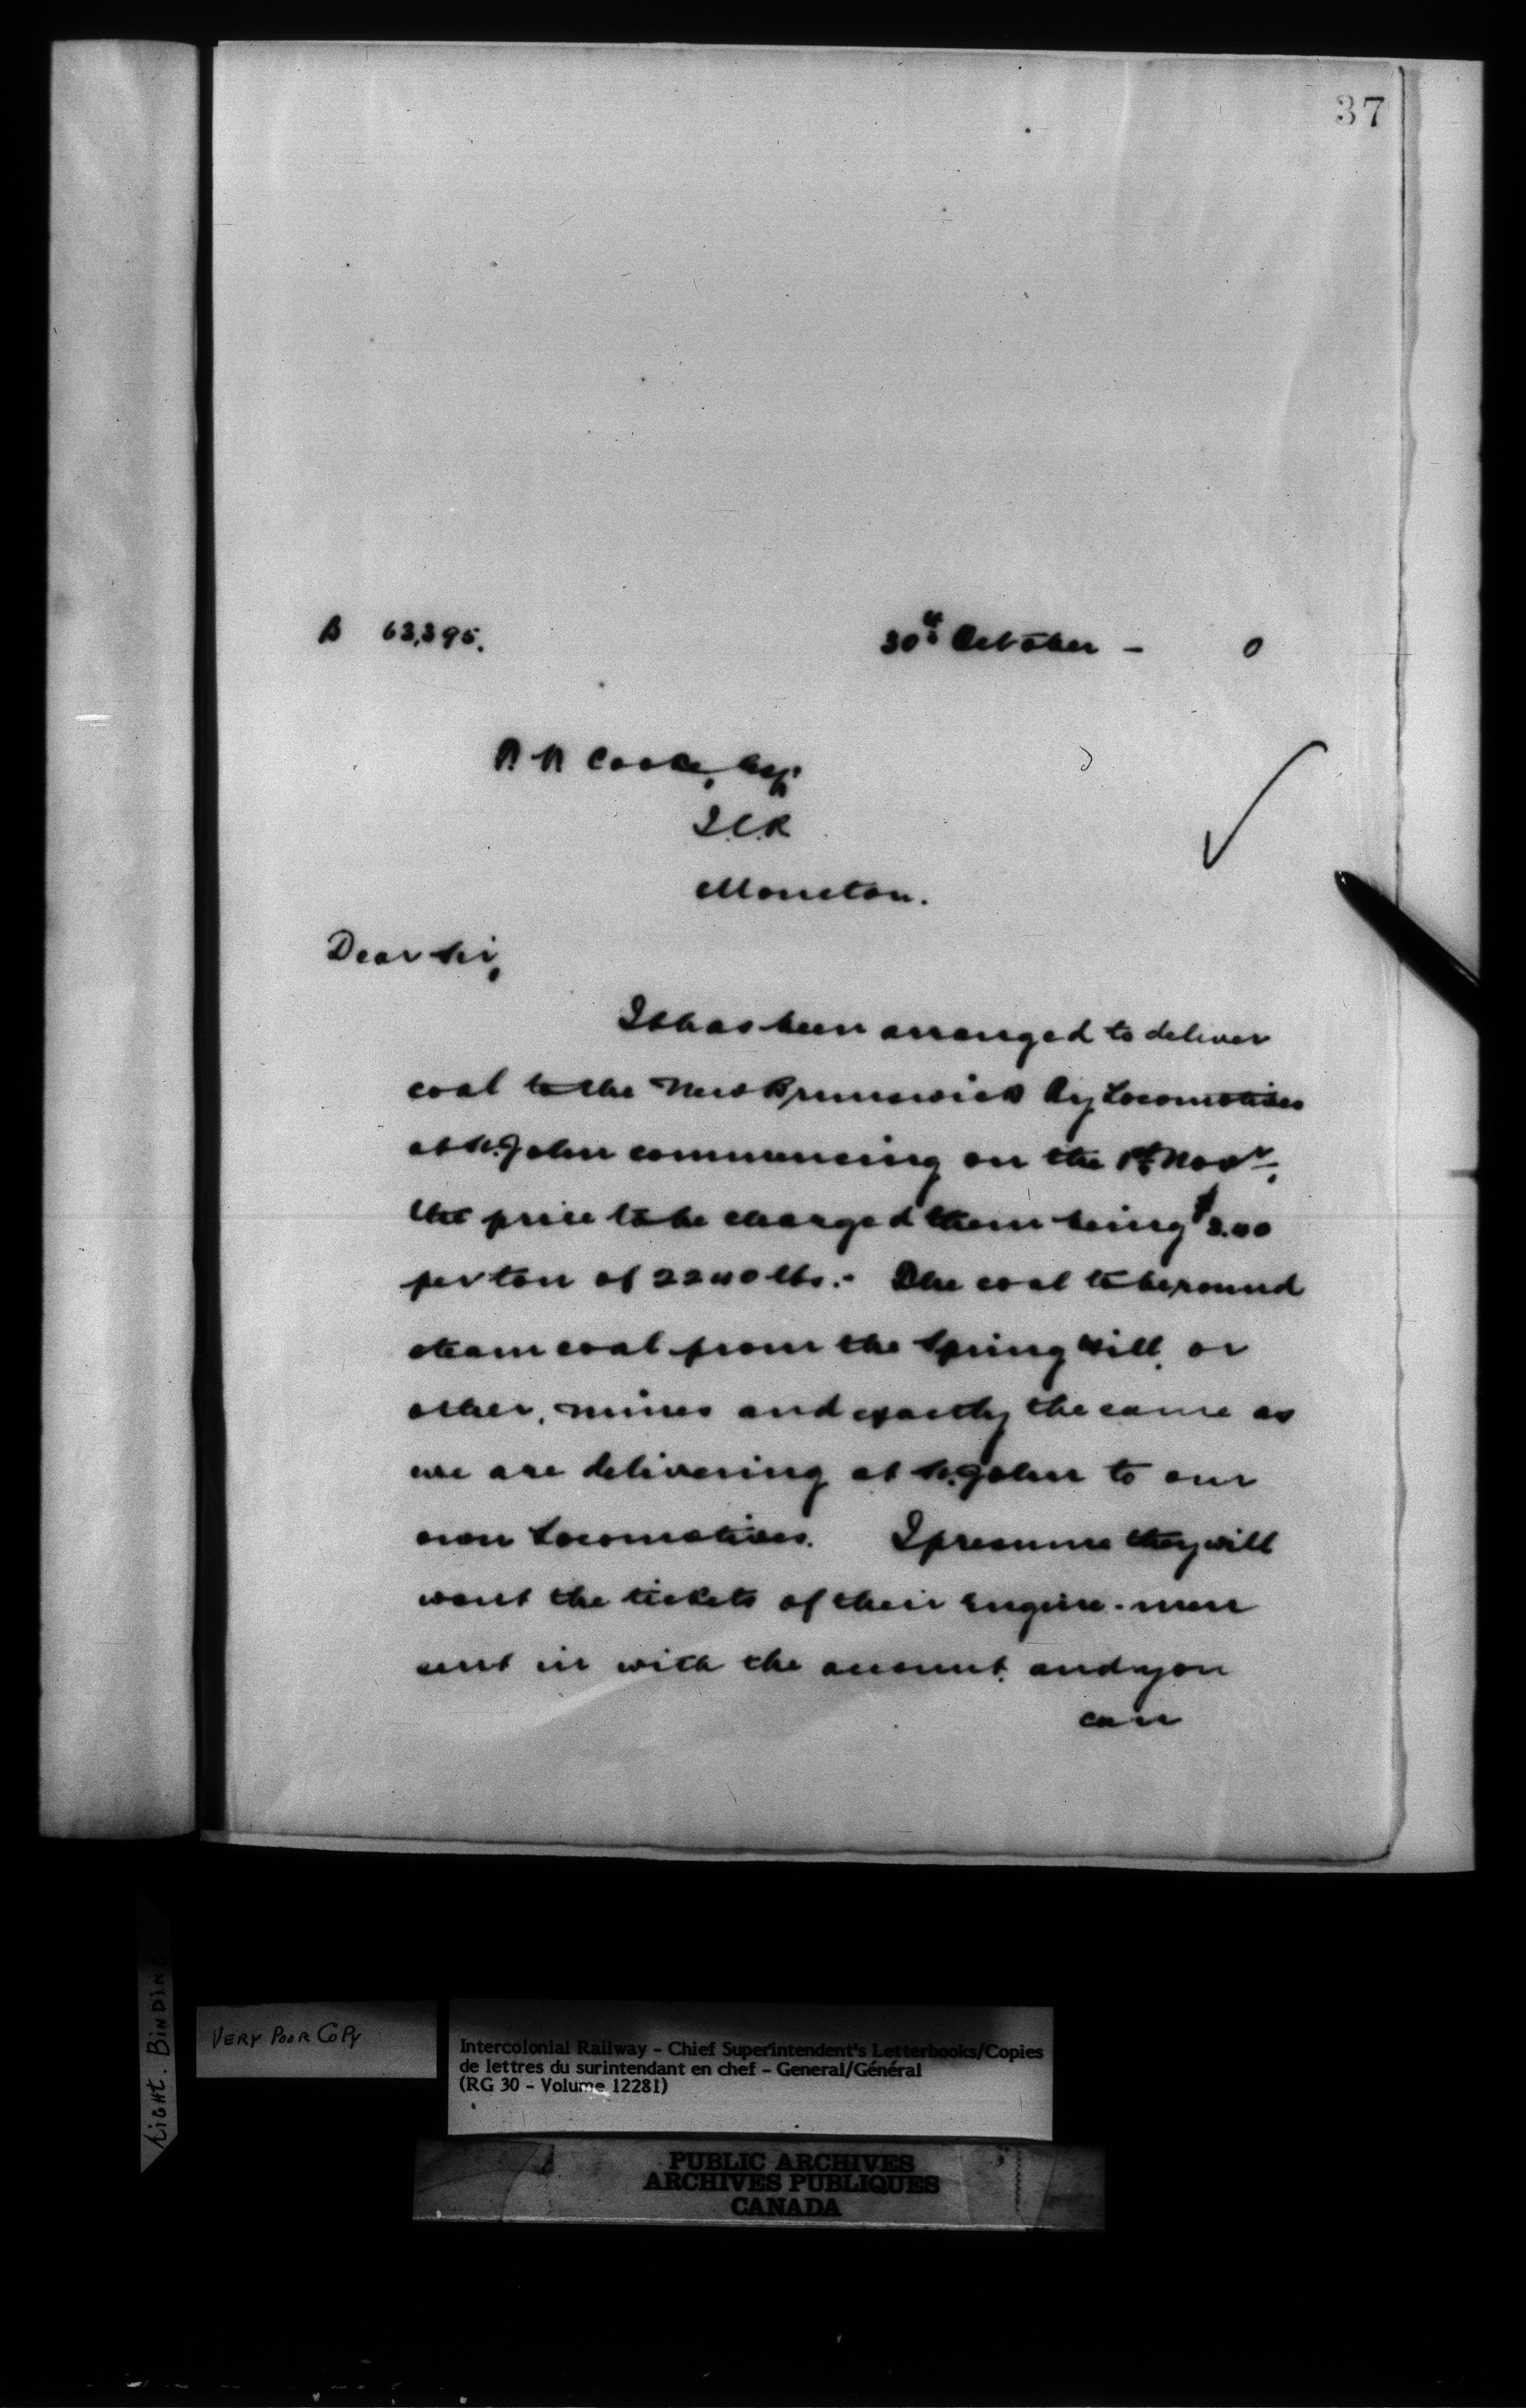 37
B 63,395.
30th October - 0
Cooke, Esq.
I.C.R
Moncton.
Dear Sir,
It has been arranged to deliver
coal to the New Brunswick Ry Locomotives
at St. John commencing on the 1st Novr,
the price to be charged them being
per ton of 2240 lbs.- The coal to be round
steam coal from the Spring Hill, or
other, mines and exactly the same as
we are delivering at St. John to our
own Locomotives. I presume they will
want the tickets of their Engine-men
sent in with the account, and you
can
Tight. Binding
Very Poor Copy
Intercolonial Railway - Chief Superintendent's Letterbooks/Copies
de lettres du surintendant en chef - General/Général
(RG 30 - Volume 12281)
PUBLIC ARCHIVES
ARCHIVES PUBLIQUES
CANADA